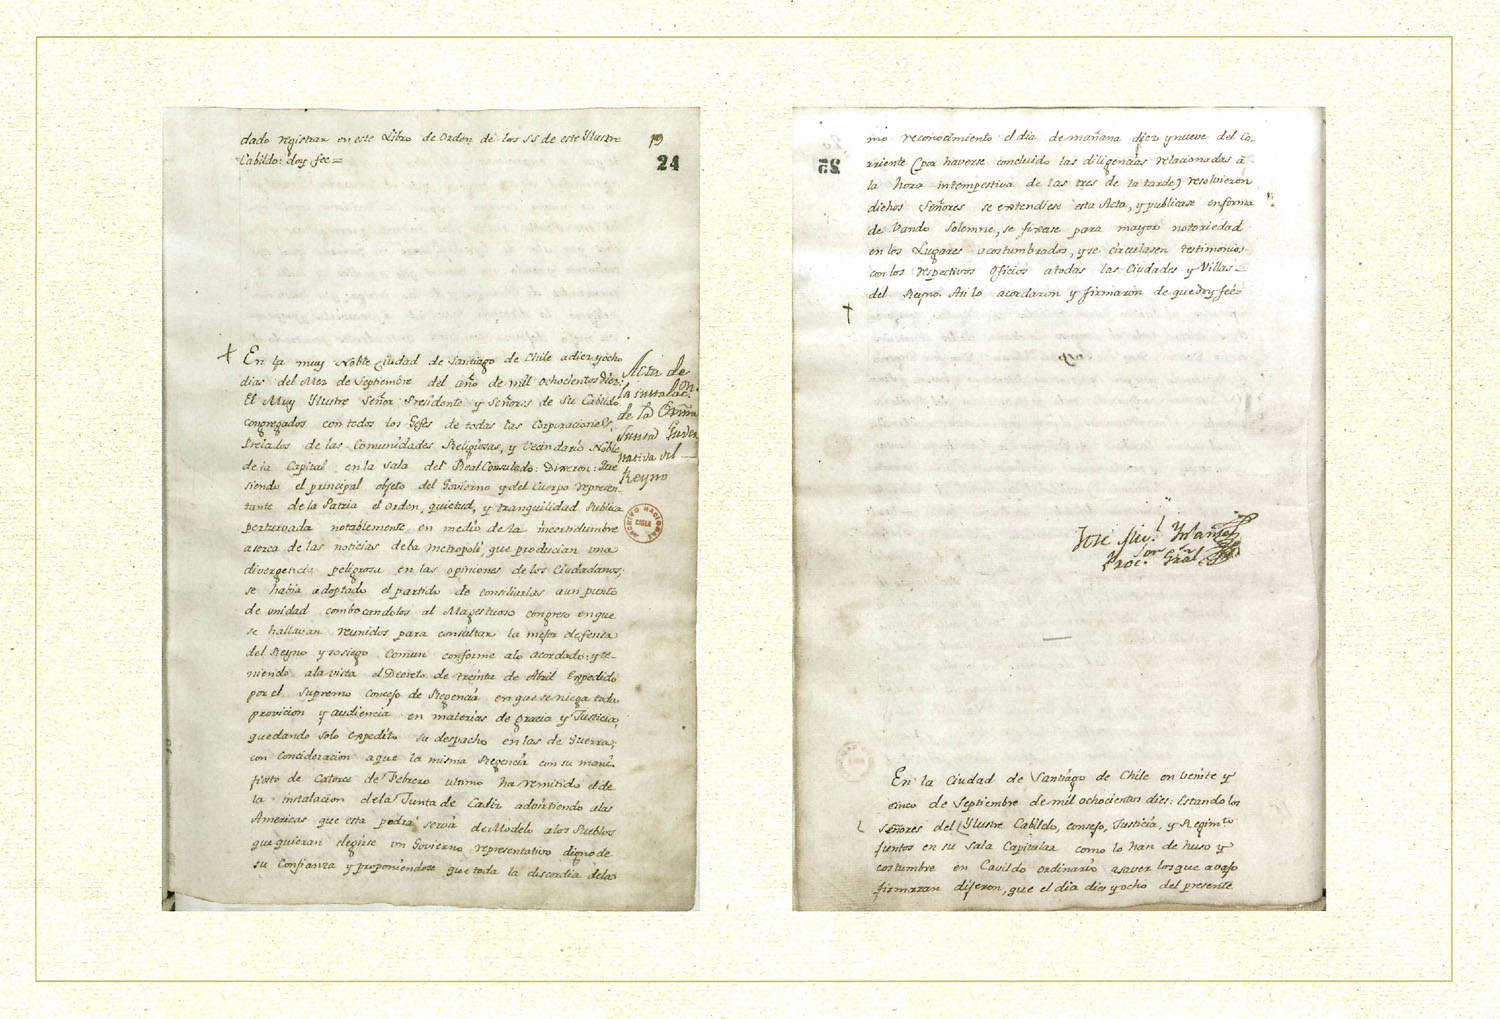 dado registrar en este Libro de Orden de los SS de este Ylustre
Cabildo: doy feé=
19
24
En la muy Noble Ciudad de Santiago de Chile a diez y ocho
dias del Mez de Septiembre del año de mil ochocientos diez:
El Muy Ylustre Señor Presidente y Señores de Su Cabildo
congregados con todos los Gefes de todas las Corporaciones,
Prelados de las Comunidades Religiosas, y Vecindario Noble
de la Capital en la Sala del Real Consulado: Dixeron: Que
siendo el principal objeto del Govierno y del Cuerpo represen-
tante de la Patria el orden, quietud, y tranquilidad Publica
perturvada notablemente en medio de la incertidumbre
aserca de las noticias de la Metropoli, que producian una
divergencia peligrosa en las opiniones de los Ciudadanos,
se habia adoptado el partido de consiliarlas a un punto
de unidad combocandolos al Magestuoso congreso en que
se hallavan reunidos para consultar la mejor defensa
del Reyno y sosiego comun conforme a lo acordado: y te-
niendo a la vista el Decreto de treinta de Abril Expedido
por el Supremo Consejo de Regencia en que se niega toda
provicion y audiencia en materias de Gracia y Justicia,
quedando solo expedito su despacho en las de Guerra;
con concideracion a que la misma Regencia con su mani-
fiesto de Catorce de Febrero ultimo ha remitido el de
la instalacion de la Junta de Cadiz advirtiendo a las
Americas que esta podrá servir de Modelo a los Pueblos
que quieran elegirse un Govierno representativo digno de
su Confianza y proponiendose que toda la discordia de la
Acta de
la instalac.on
de la Exma
Junta Guber
nativa del
Reyno
ARCHIVO NACIONAL
CHILE
25
mo reconocimiento el dia de mañana diez y nueve del Co-
rriente (por haverse concluido las diligencias relacionadas á
la hora intempestiva de las tres de la tarde) resolvieron
dichos Señores se extendiese esta Acta, y publicase en forma
de Vando Solemne, se fixase para mayor notoriedad
en los Lugares acostumbrados, y se circulasen testimonios
con los respectivos oficios a todas las Ciudades y Villas
del Reyno. Asi lo acordaron y firmaron de que doy feé=
José Mig.l Ynfante
Proc.or Gral
En la Ciudad de Santiago de Chile en veinte y
cinco de Septiembre de mil ochocientos dies: Estando los
Señores del Ylustre Cabildo, consejo, Justicia, y Regim.to
juntos en su Sala Capitular como lo han de huso y
costumbre en Cavildo ordinario asaver los que avajo
firmaran dijeron, que el dia dies y ocho del presente